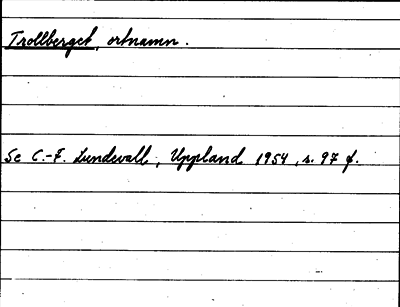 Trollberget, ortnamn.
Se C.-F. Lundevall, Uppland 1954, s. 97 f.